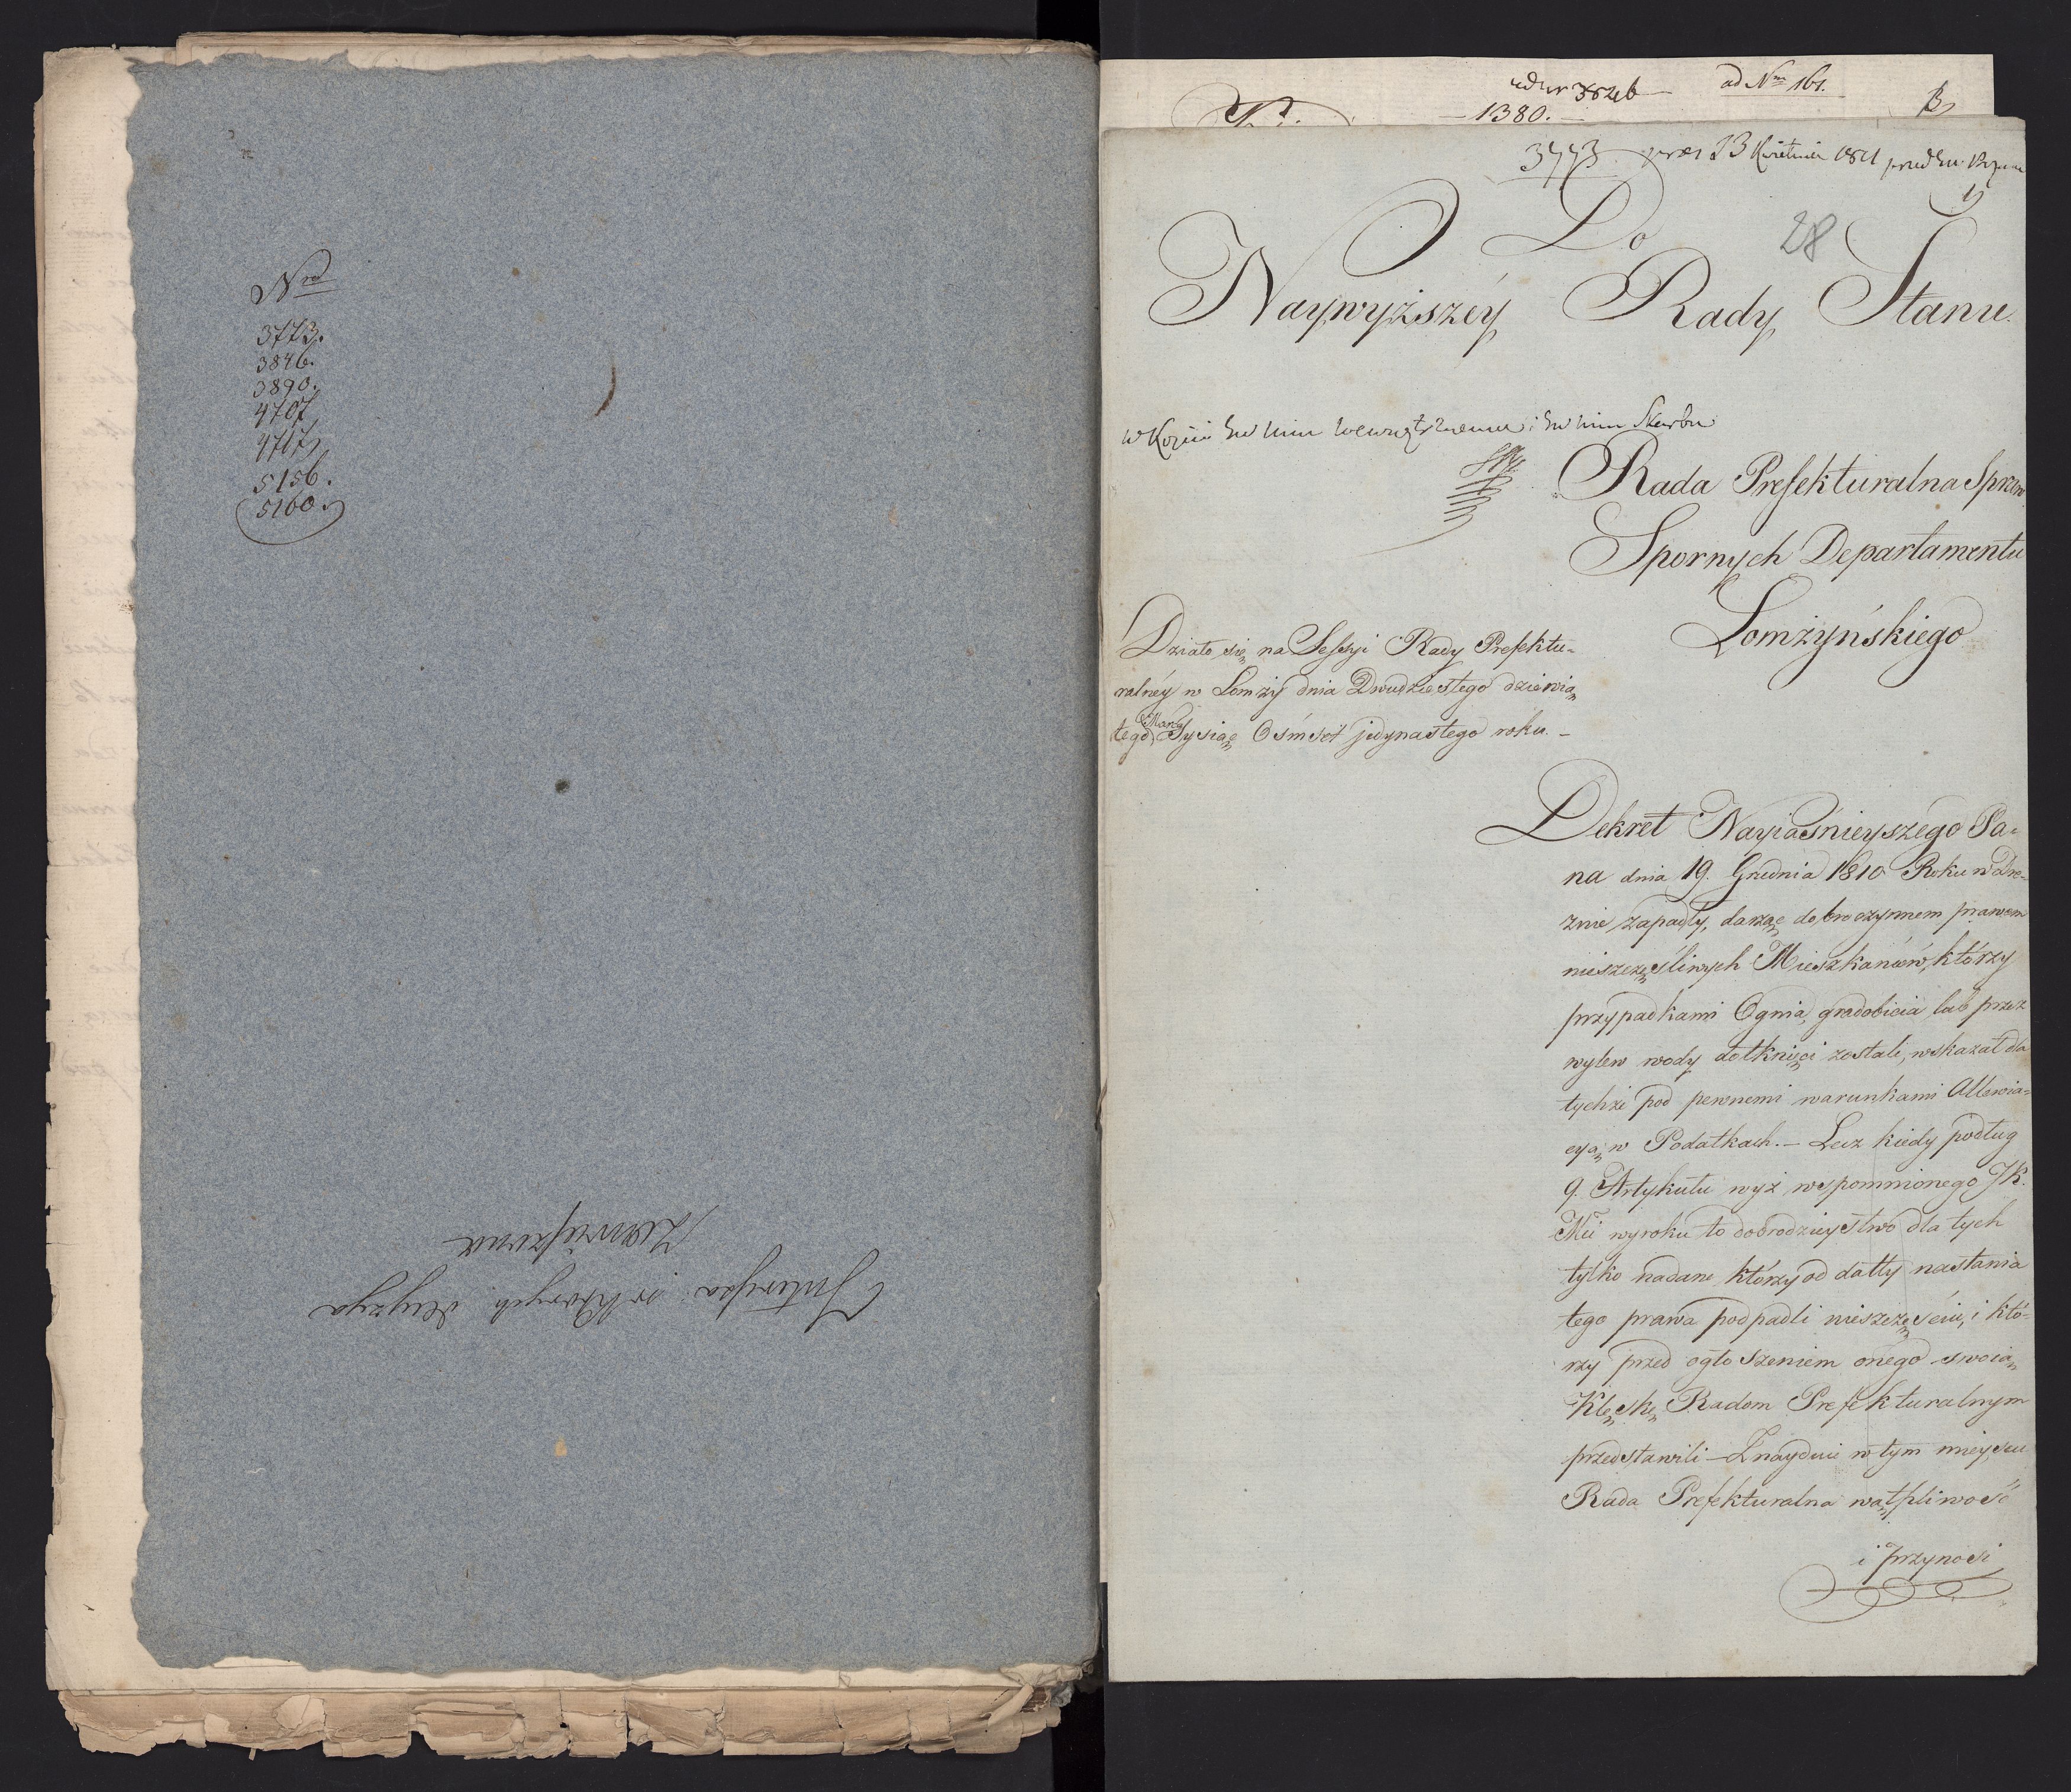 Nra
3773.
3846.
3890.
4707
4717
5156.
5160.
Interessa w których decyzya
Zawieszona
ad Nm 161.
1380.
3773 prez 23 Kwietnia 1811
28
Do
Naywyższéy Rady Stanu.
Rada Prefekturalna Spraw
Spornych Departamentu
Łomżyńskiego
Działo się na Sessyi Rady Prefektu-
ralnéy w Łomży dnia Dwudziestego dziewią
tego Marca Tysiąc Ośmset jedynastego roku. –
Dekret Nayiaśnieyszego Pa-
na dnia 19. Grudnia 1810 Roku w Dre-
znie zapadły, darząc dobroczynnem prawem
nieszczęśliwych Mieszkańców, którzy
przypadkami Ognia, gradobicia lub przez
wylew wody dotknięci zostali, wskazał dla
tychże pod pewnemi warunkami Allewia-
cyą w Podatkach. – Lecz kiedy podług
9. Artykułu wyż wspomnionego JK.
Mci wyroku to dobrodzieystwo dla tych
tylko nadane którzy od datty nastania
tego prawa podpadli nieszczęściu, i któ-
rzy przed ogłoszeniem onego swoią
Klęskę Radom Prefekturalnym
przedstawili – Znayduie w tym mieyscu
Rada Prefekturalna wątpliwość
i przynosi